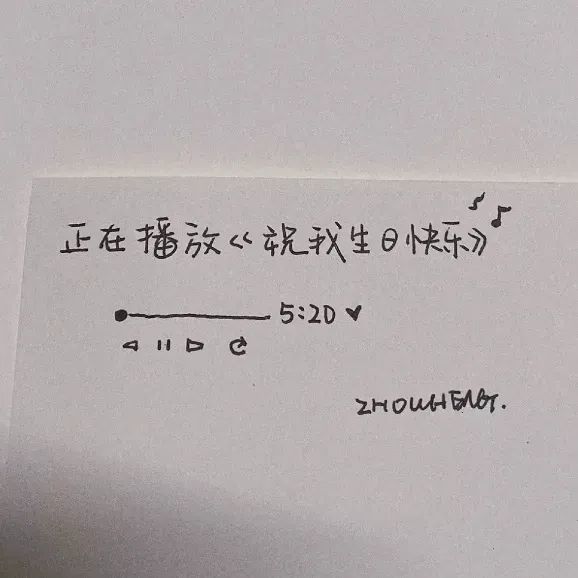 正在播放《祝我生日快乐》
5:20
ZHOUHENG.